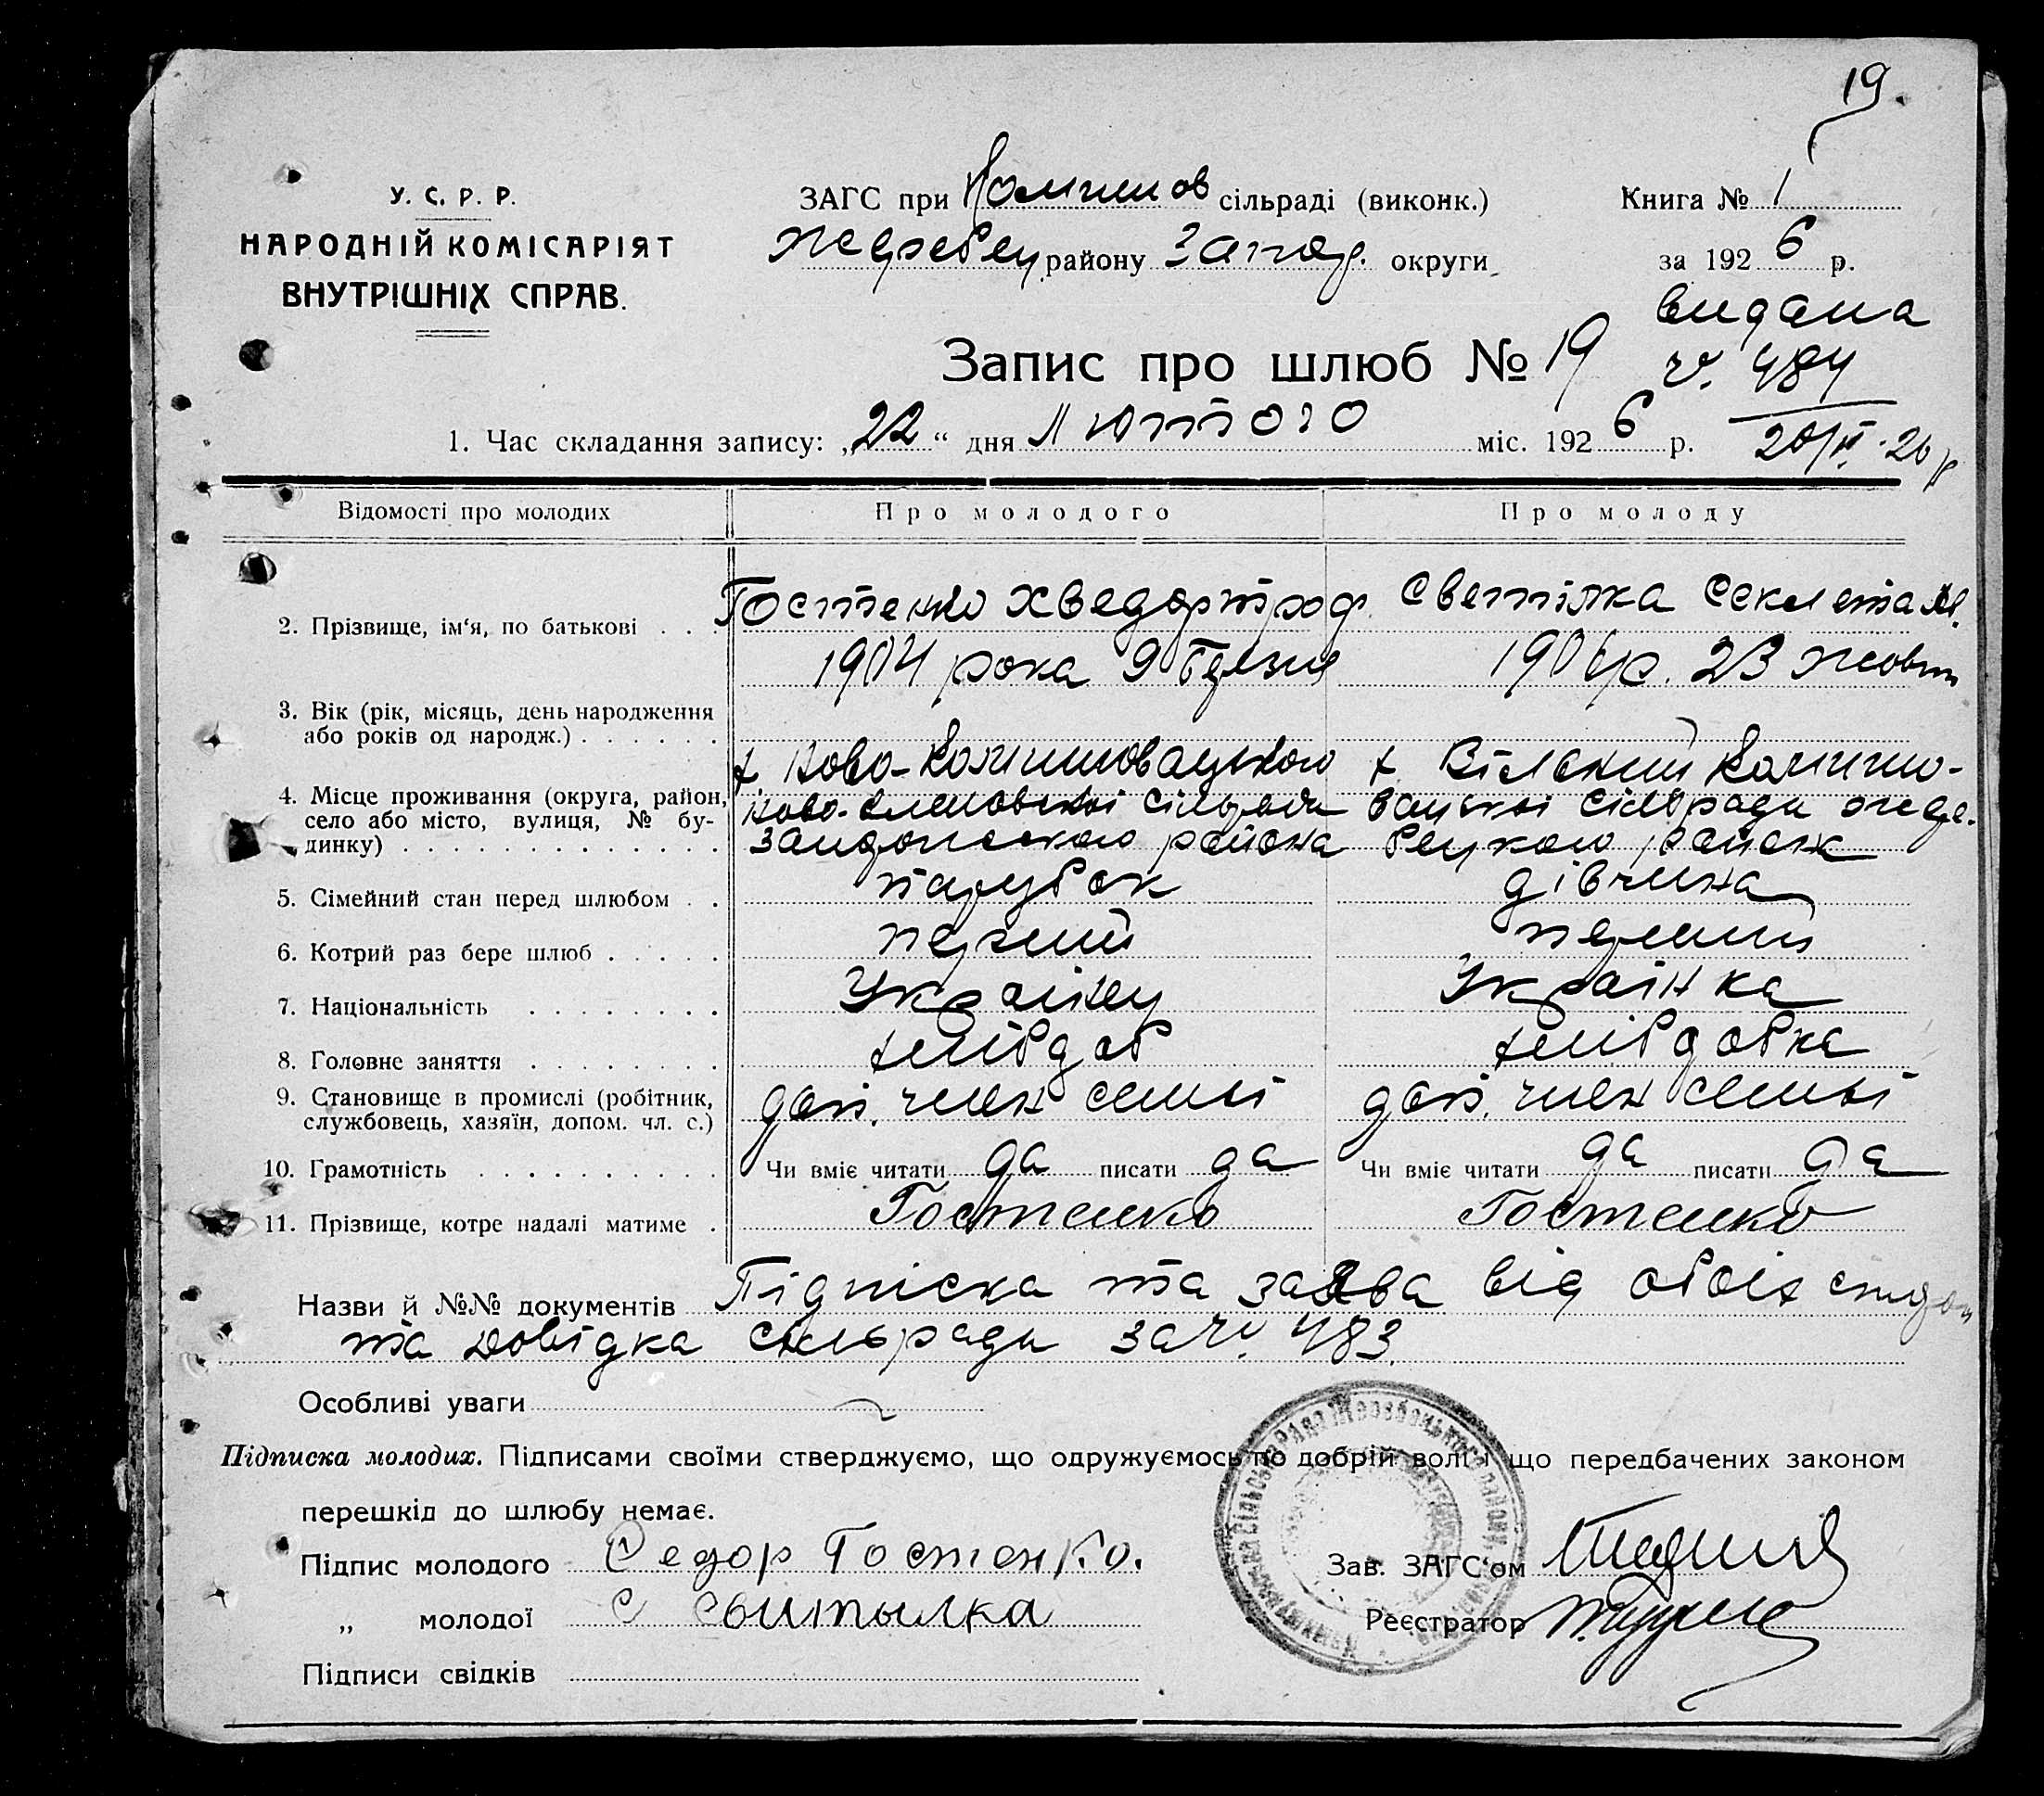 19.
У. С. Р. Р.
НАРОДНІЙ КОМІСАРІЯТ
ВНУТРІШНІХ СПРАВ.
ЗАГС при Комишов сільраді (виконк.)
Жеребец. району Запор. округи
Книга № 1
за 1926 р.
видана
Запис про шлюб № 19
ч. 484
20/II. 26 р
1. Час складання запису: „22“ дня Лютого міс. 1926 р.
Відомості про молодих Про молодого Про молоду
2. Прізвище, ім‘я, по батькові Гостенко Хведор Троф. Светілка Секлета М.
1904 рока 9 Березня 1906 р. 23 жовт
3. Вік (рік, місяць, день народження
або років од народж.)
4. Місце проживання (округа, район,
село або місто, вулиця, № бу-
динку)
х. Ново-Комишовацького х. Вільний Комишо-
Ново- сільради вацькой сільради жере-
района бецкого район
5. Сімейний стан перед шлюбом парубок дівчина
6. Котрий раз бере шлюб перший перший
7. Національність Українец Українка
8. Головне заняття хлібороб хліборобка
9. Становище в промислі (робітник,
службовець, хазяїн, допом. чл. с.)
доп. член семьі доп. член семьі
10. Грамотність Чи вміє читати да писати да Чи вміє читати да писати да
11. Прізвище, котре надалі матиме Гостенко Гостенко
Назви й №№ документів Підпіска та заява від обоіх
та Довідка сільради за ч. 483.
Особливі уваги
Підписка молодих. Підписами своїми стверджуємо, що одружуємось по добрій волі і що передбачених законом
перешкід до шлюбу немає.
Підпис молодого Федор Гостенко.
„ молодої С Свитылка
Підписи свідків
Зав. ЗАГС‘ом
Реєстратор